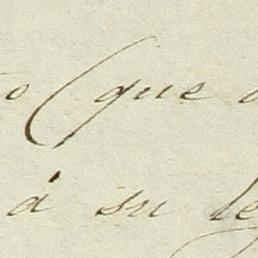 (que
á su